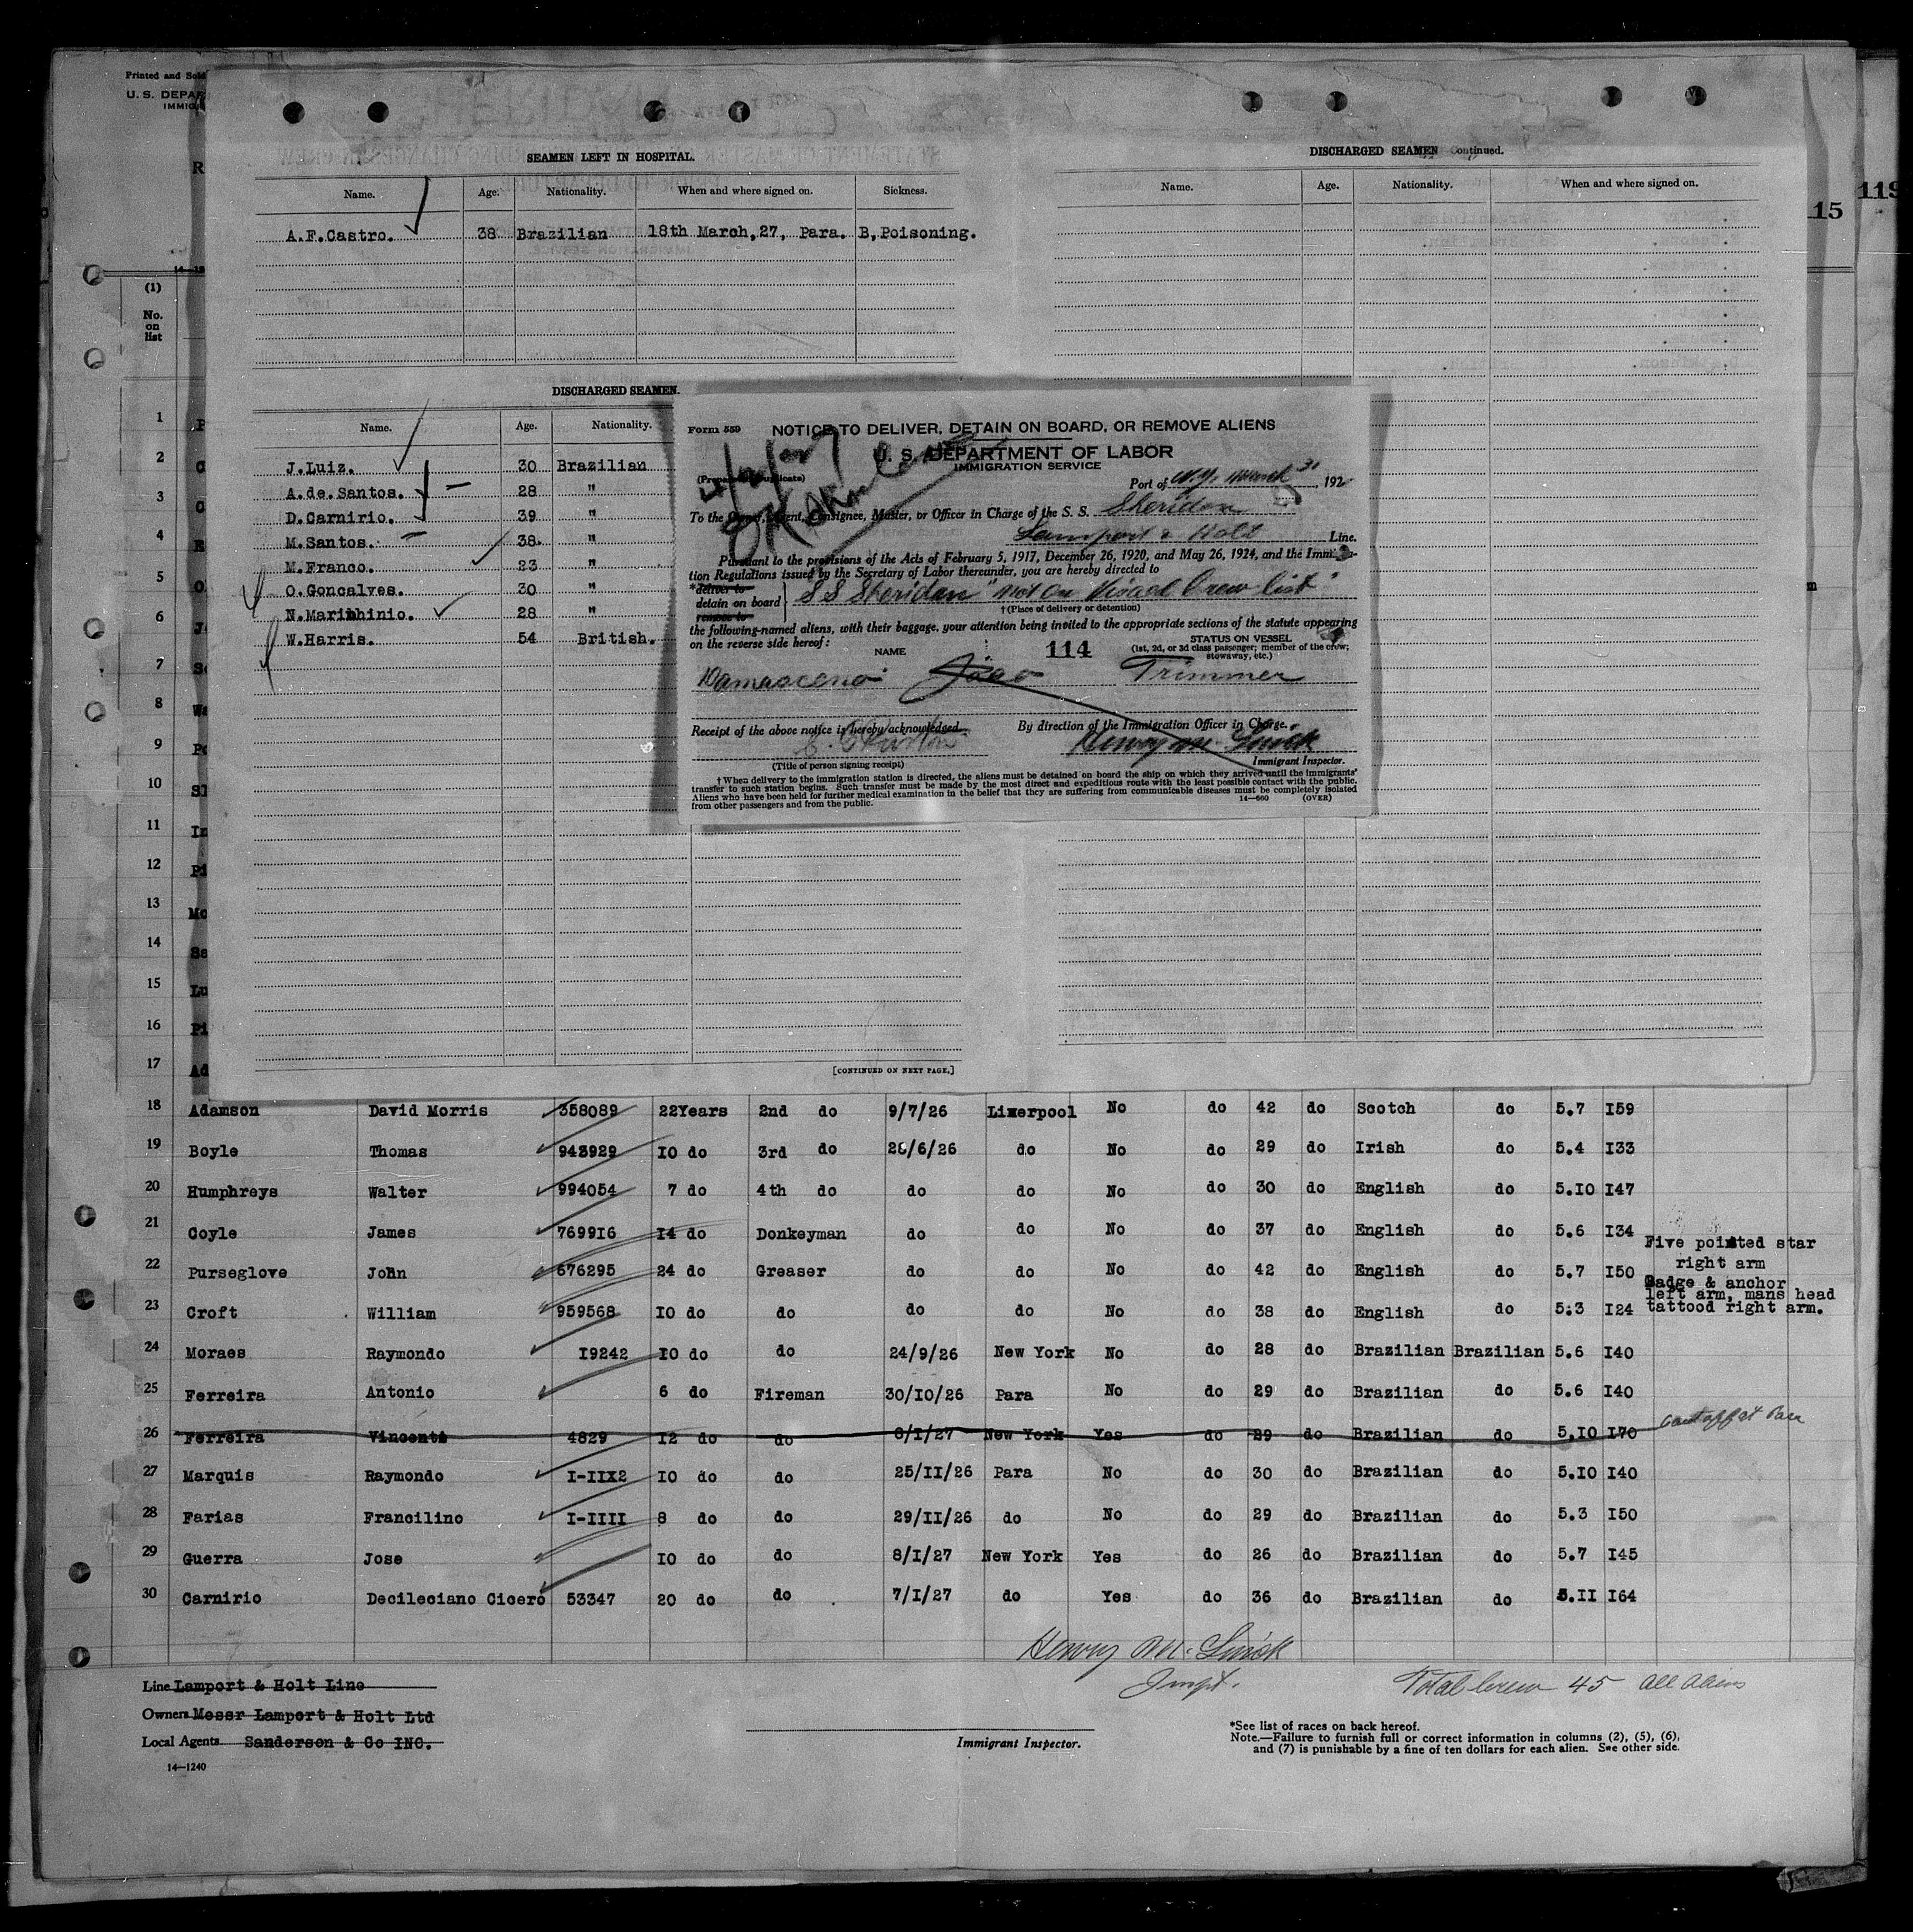 Printed and Sold
U. S. DEPAR
IMMIG
R
115
119
SEAMEN LEFT IN HOSPITAL.
Name. Age. Nationality. When and where signed on. Sickness.
A.F.Castro. 38 Brazilian 18th March,27, Para. B,Poisoning.
DISCHARGED SEAMEN Continued.
Name. Age. Nationality. When and where signed on.
DISCHARGED SEAMEN.
Name. Age. Nationality.
J.Luiz. 30 Brazilian
A.de.Santos. 28 "
D.Carnirio. 39 "
M.Santos. 38. "
M.Franco. 23 "
O.Goncalves. 30 "
N.Marinhinio. 28 "
W.Harris. 54 British.
[CONTINUED ON NEXT PAGE.]
Form 559
NOTICE TO DELIVER, DETAIN ON BOARD, OR REMOVE ALIENS
U. S. DEPARTMENT OF LABOR
IMMIGRATION SERVICE
OK
Port of N.Y. March 31, 192
To the Owner, Agent, Consignee, Master, or Officer in Charge of the S. S. Sheridan
Lamport & Holt Line.
Pursuant to the provisions of the Acts of February 5, 1917, December 26, 1920, and May 26, 1924, and the Immigra-
tion Regulations issued by the Secretary of Labor thereunder, you are hereby directed to
*deliver to
detain on board
remove to
SS Sheridan "Not on Visaed Crew list"
†(Place of delivery or detention)
the following-named aliens, with their baggage, your attention being invited to the appropriate sections of the statute appearing
on the reverse side hereof:
NAME
114
STATUS ON VESSEL
(1st, 2d, or 3d class passenger; member of the crew;
stowaway, etc.)
Damasceno Joao Trimmer
Receipt of the above notice is hereby acknowledged.
By direction of the Immigration Officer in Charge.
Henry Mc
(Title of person signing receipt)
Immigrant Inspector.
†When delivery to the immigration station is directed, the aliens must be detained on board the ship on which they arrived until the immigrants'
transfer to such station begins. Such transfer must be made by the most direct and expeditious route with the least possible contact with the public.
Aliens who have been held for further medical examination in the belief that they are suffering from communicable diseases must be completely isolated
from other passengers and from the public.
14—660 (OVER)
(1)
No.
on
list
1
2
3
4
5
6
7
8
9
10
11
12
13
14
15
16
17
18 Adamson David Morris 358089 22Years 2nd do 9/7/26 Liverpool No do 42 do Scotch do 5.7 I59
19 Boyle Thomas 943929 IO do 3rd do 28/6/26 do No do 29 do Irish do 5.4 I33
20 Humphreys Walter 994054 7 do 4th do do do No do 30 do English do 5.IO I47
21 Coyle James 7699I6 I4 do Donkeyman do do No do 37 do English do 5.6 I34
Five pointed star
right arm
22 Purseglove John 676295 24 do Greaser do do No do 42 do English do 5.7 I50
Badge & anchor
left arm, mans head
tattood right arm.
23 Croft William 959568 IO do do do do No do 38 do English do 5:3 I24
24 Moraes Raymondo I9242 IO do do 24/9/26 New York No do 28 do Brazilian Brazilian 5.6 I40
25 Ferreira Antonio 6 do Fireman 30/IO/26 Para No do 29 do Brazilian do 5.6 I40
26 Ferreira Vincente 4829 I2 do do 8/I/27 New York Yes do 29 do Brazilian do 5.IO I70
27 Marquis Raymondo I-IIX2 IO do do 25/II/26 Para No do 30 do Brazilian do 5.IO I40
28 Farias Francilino I-IIII 8 do do 29/II/26 do No do 29 do Brazilian do 5.3 I50
29 Guerra Jose IO do do 8/I/27 New York Yes do 26 do Brazilian do 5.7 I45
30 Carnirio Decileciano Cicero 53347 20 do do 7/I/27 do Yes do 36 do Brazilian do 5.II I64
Henry Mc
Inspt.
Total Crew 45 all aliens
Line Lamport & Holt Line
Owners Messr Lamport & Holt Ltd
Local Agents Sanderson & Co INC.
14—1240
Immigrant Inspector.
*See list of races on back hereof.
Note.—Failure to furnish full or correct information in columns (2), (5), (6),
and (7) is punishable by a fine of ten dollars for each alien. See other side.